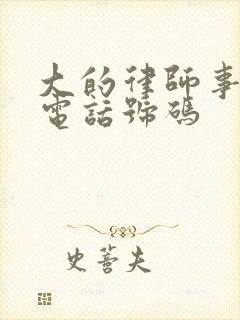 大的律師事
電話號碼
史蒼夫